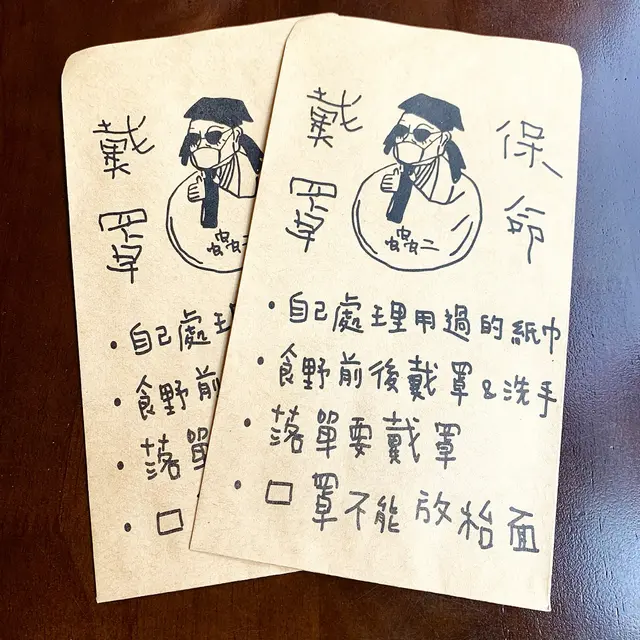 戴罩
蟲二
自己處理
食野前
落單
口
戴罩 保命
蟲二
• 自己處理用過的紙巾
• 食野前後戴罩&洗手
• 落單要戴罩
• 口罩不能放枱面